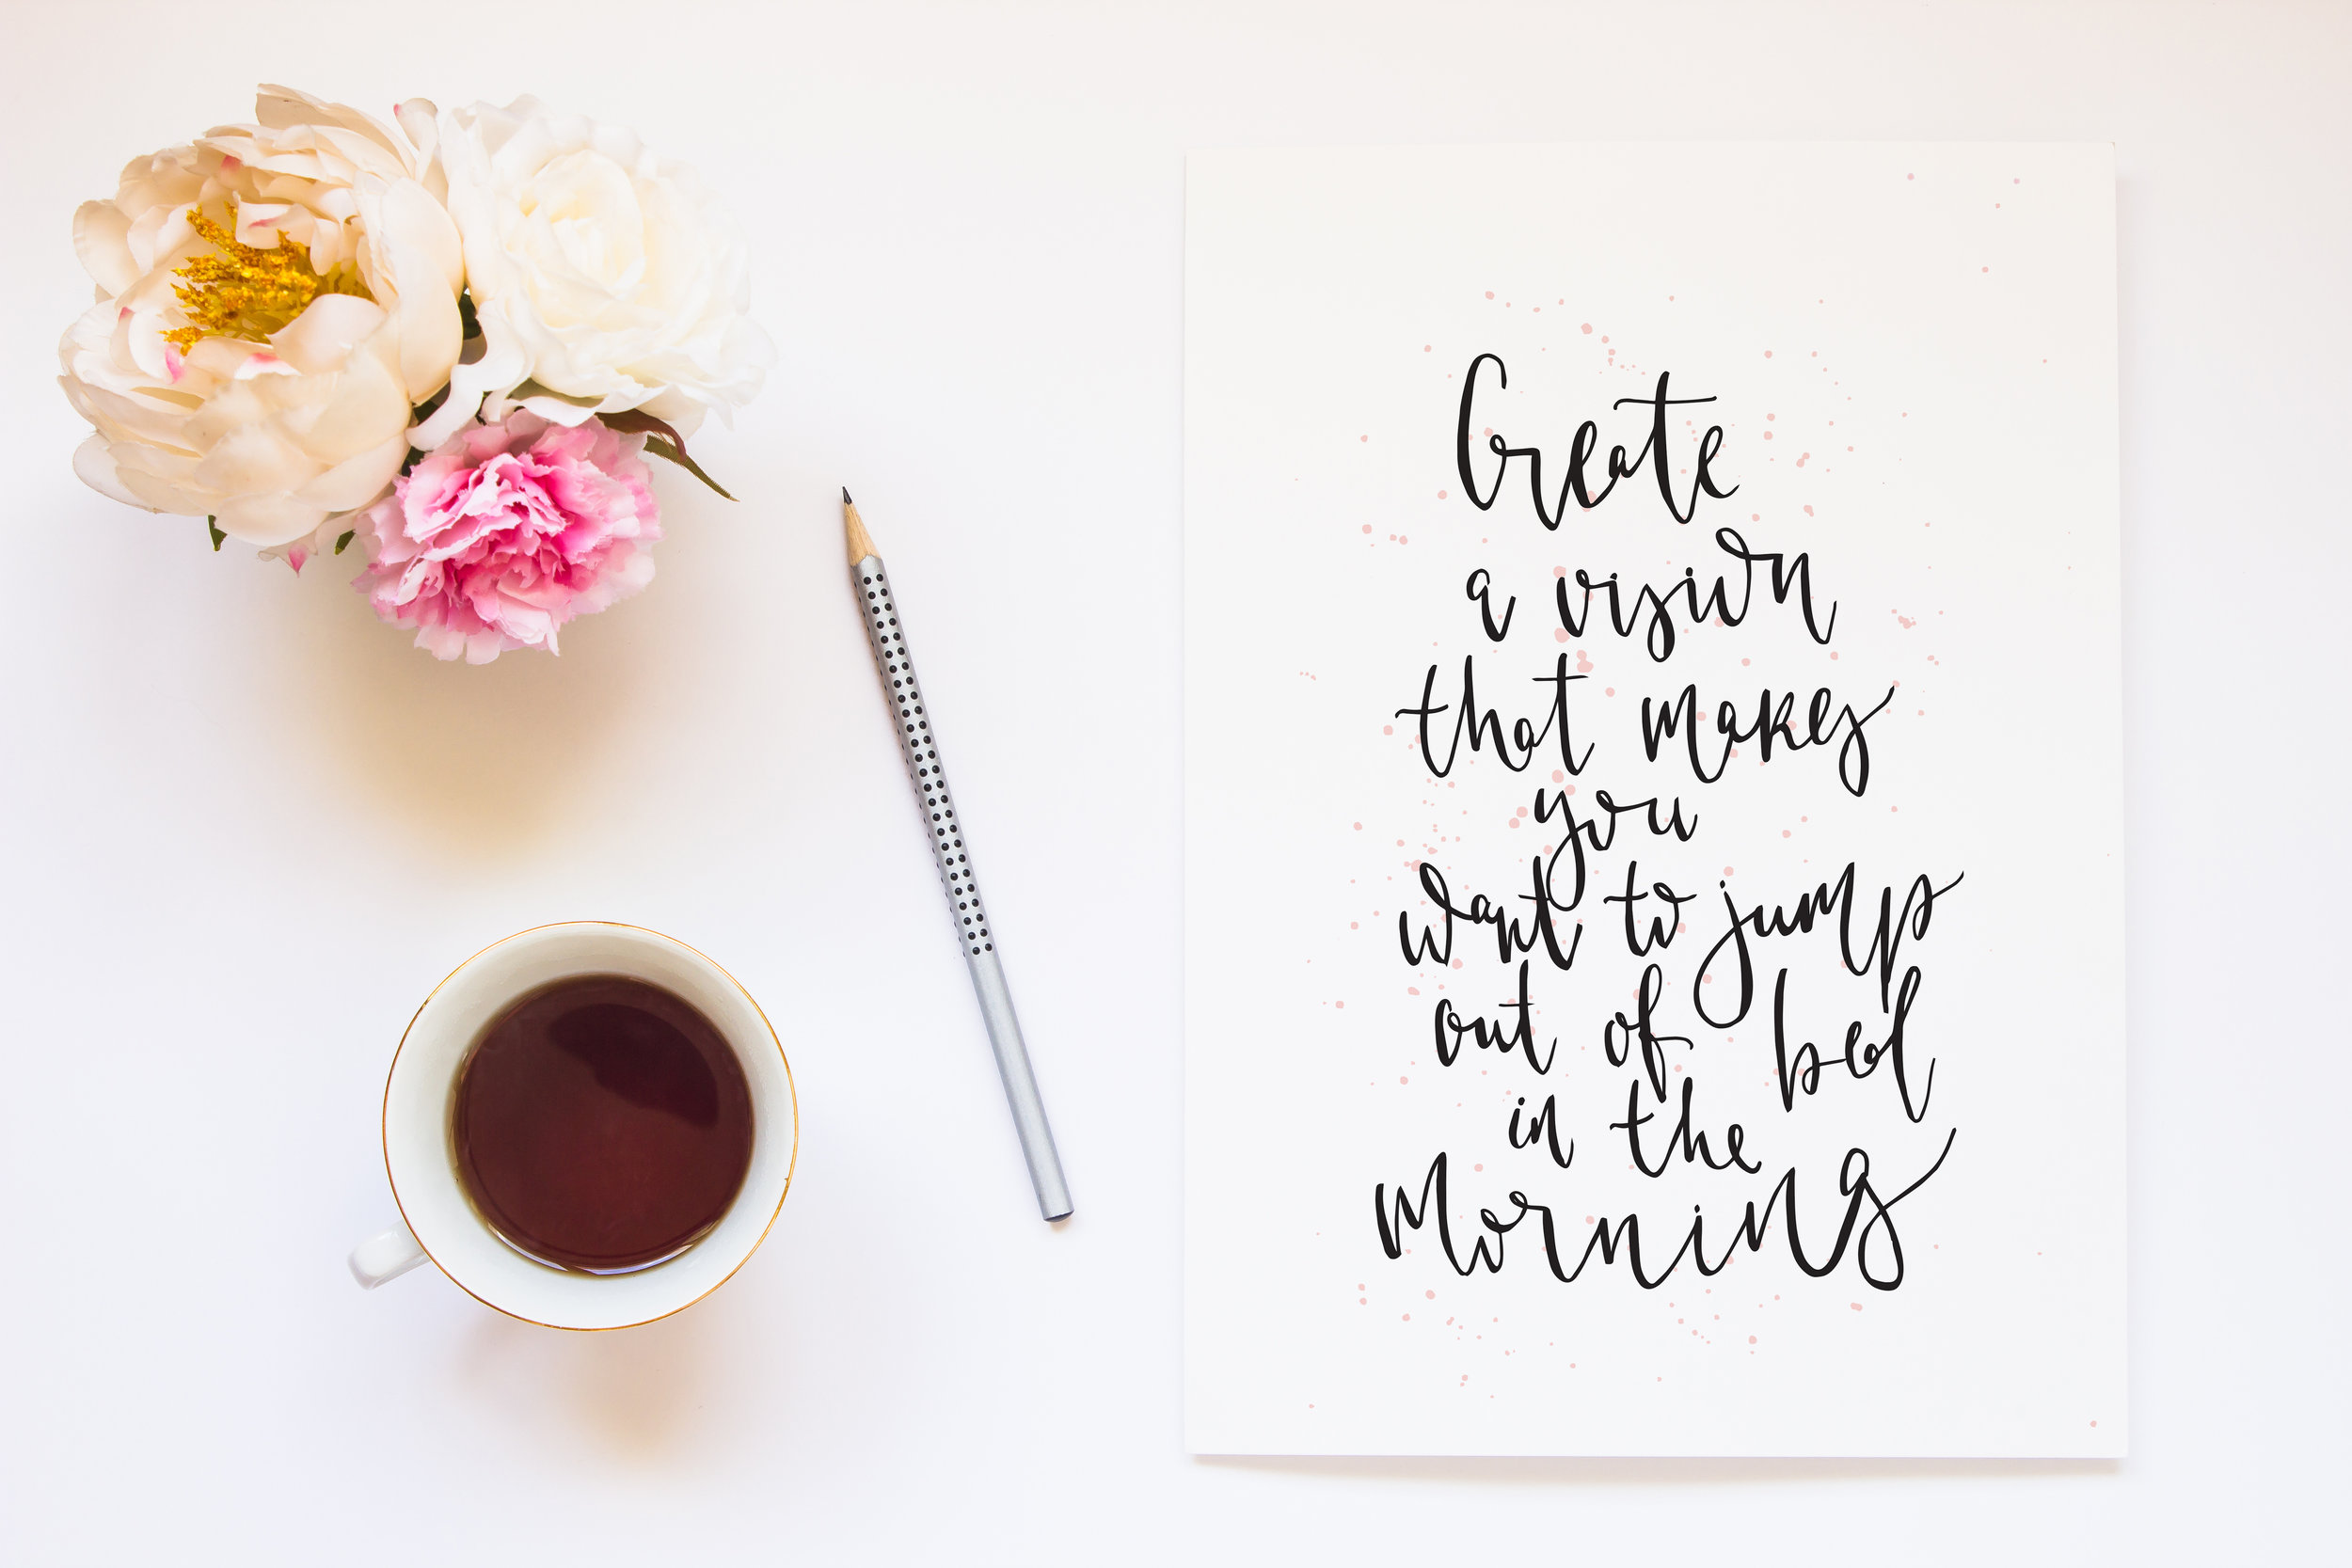 Create
a vision
that makes
you
want to jump
out of bed
in the
Morning